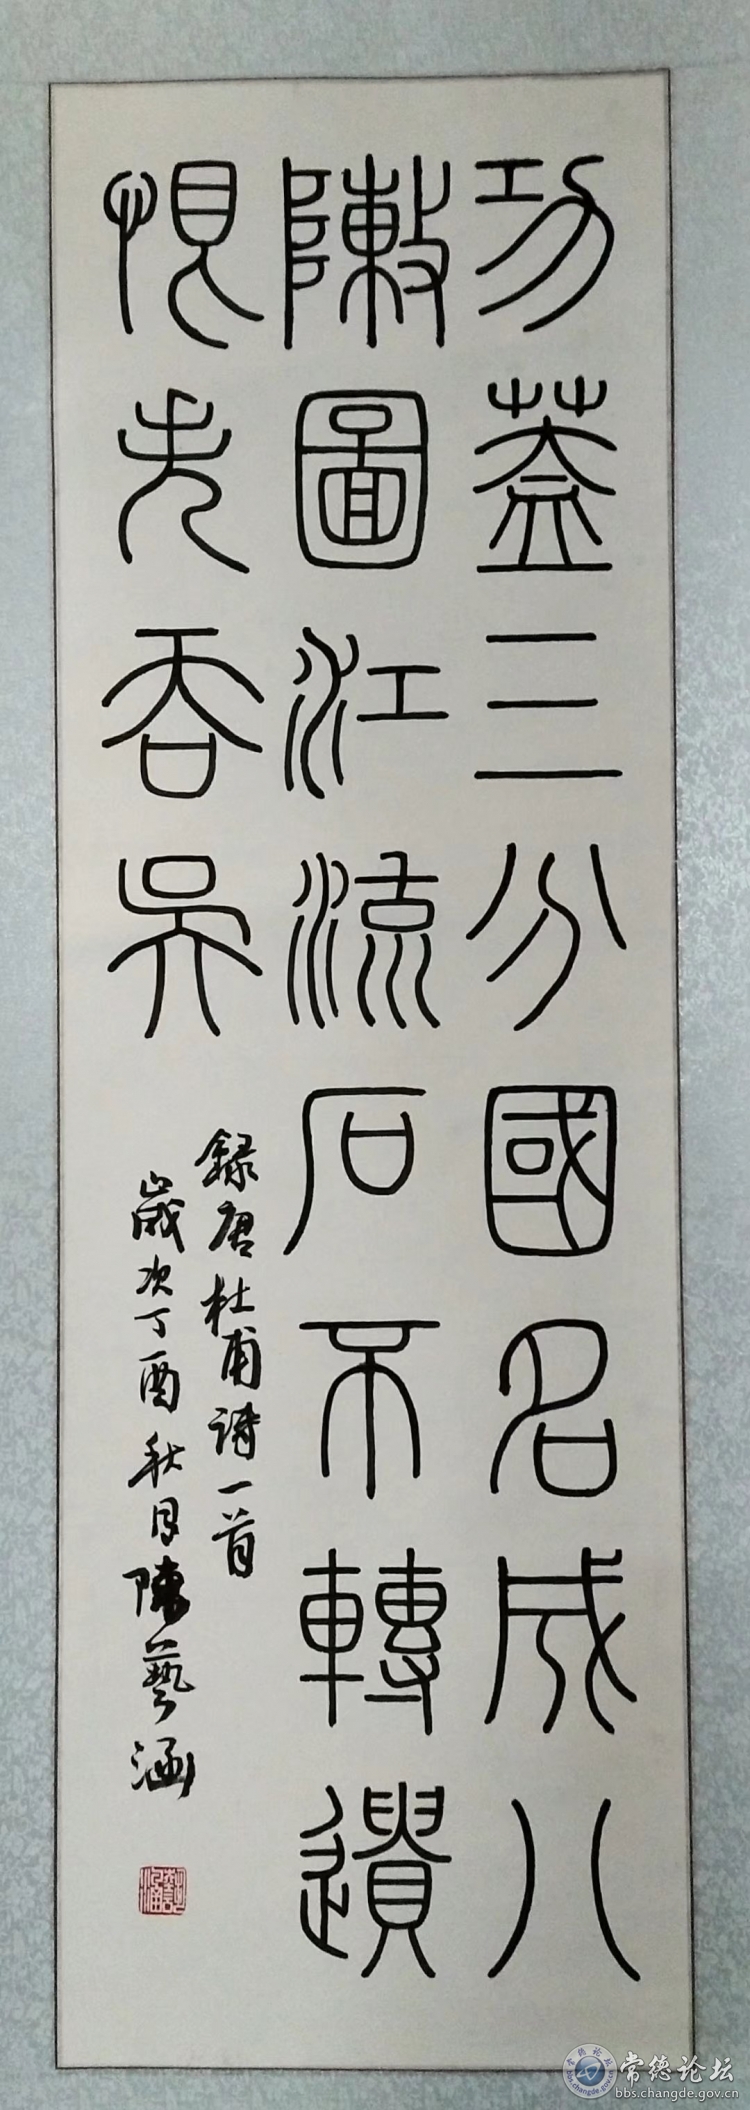 功蓋三分國名成八
陳圖江流石不轉遺
恨失吞吳
錄唐杜甫詩一首
歲次丁酉秋月陳藝涵
常德论坛
bbs.changde.gov.cn